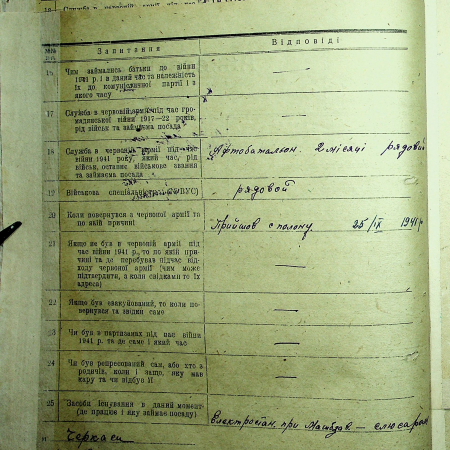 №№ п/п Запитання Відповіді
16 Чим займались батьки до війни
1941 р. і в даний час та належність
їх до комуністичної партії і з
якого часу —
17 Служба в червоній армії під час гро-
мадянської війни 1917—22 років,
рід військ та займана посада —
18 Служба в червоній армії під час
війни 1941 року, який час, рід
військ, останнє військове звання
та займана посада
Автобатальон. 2 місяці рядовий
19 Військова спеціальність (ВУС) рядовой
20 Коли повернувся з червоної армії та
по якій причині Прийшов с полону. 25/IX 1941 р
21 Якщо не був в червоній армії під
час війни 1941 р., то по якій при-
чині та де перебував підчас від-
ходу червоної армії (чим може
підтвердити, з коли свідками то їх
адреса) —
22 Якщо був евакуйований, то коли по-
вернувся та звідки саме —
23 Чи був в партизанах під час війни
1941 р. та де саме і який час —
24 Чи був репресований сам, або хто з
родичів, коли і защо, яку мав
кару та чи відбув її —
25 Засоби існування в даний момент
(де працює і яку займає посаду)
Електростан. при Машбуд — слюсаром
Черкаси